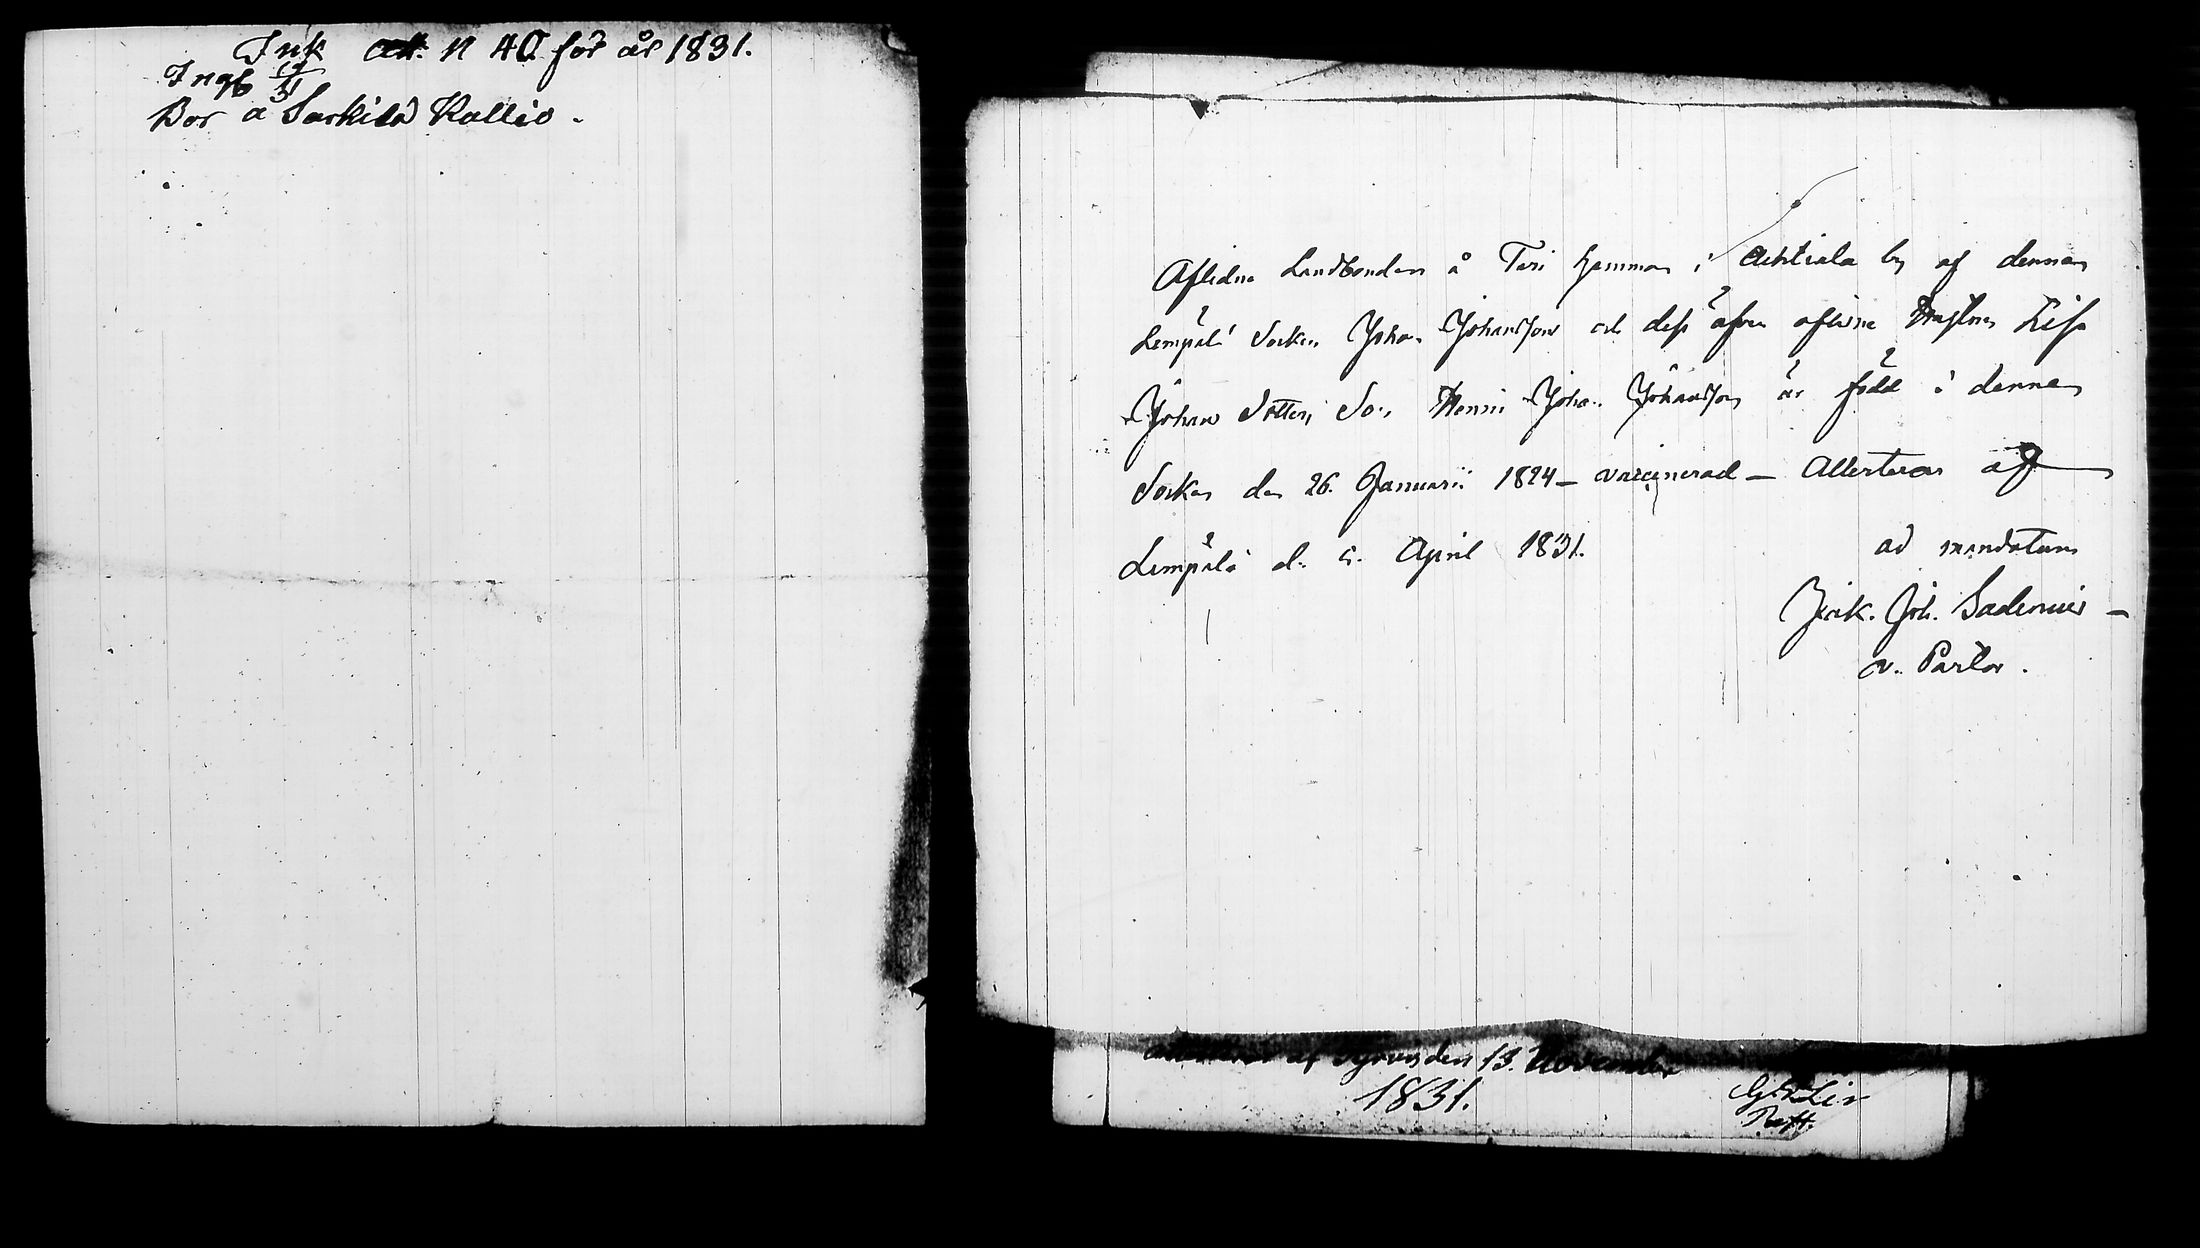 Ink att. N 40 för år 1831.
Ingf 17/4 31
Bor a Sarkila Kallio.
Aflidne Landbonden å Teri hemman i Ahtiala by af denna
Lempälä Socken Johan Johansson och dess äfven aflidne Hustru Lisa
Johans Dotters Son Henric Johan Johansson är född i denna
Socken den 26. Januarii 1824 - vaccinerad - Attesteras af
Lempälä d. 5. April 1831.
ad mandatum
Joh.
v. Pastor.
af Tyrvis den 13. November
1831.